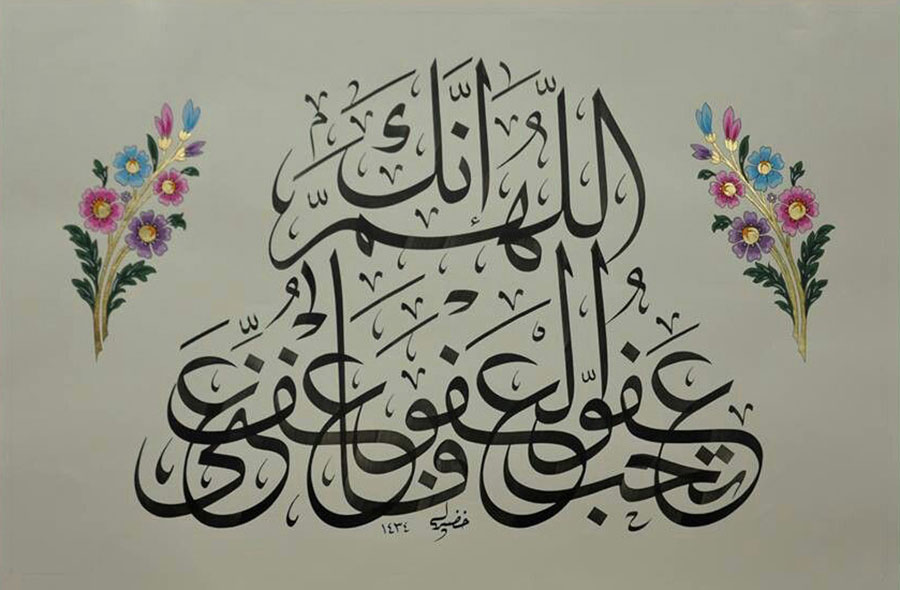 اللَّهُمَّ إِنَّكَ
عَفُوٌّ تُحِبُّ الْعَفْوَ فَاعْفُ عَنِّي
١٤٣٤